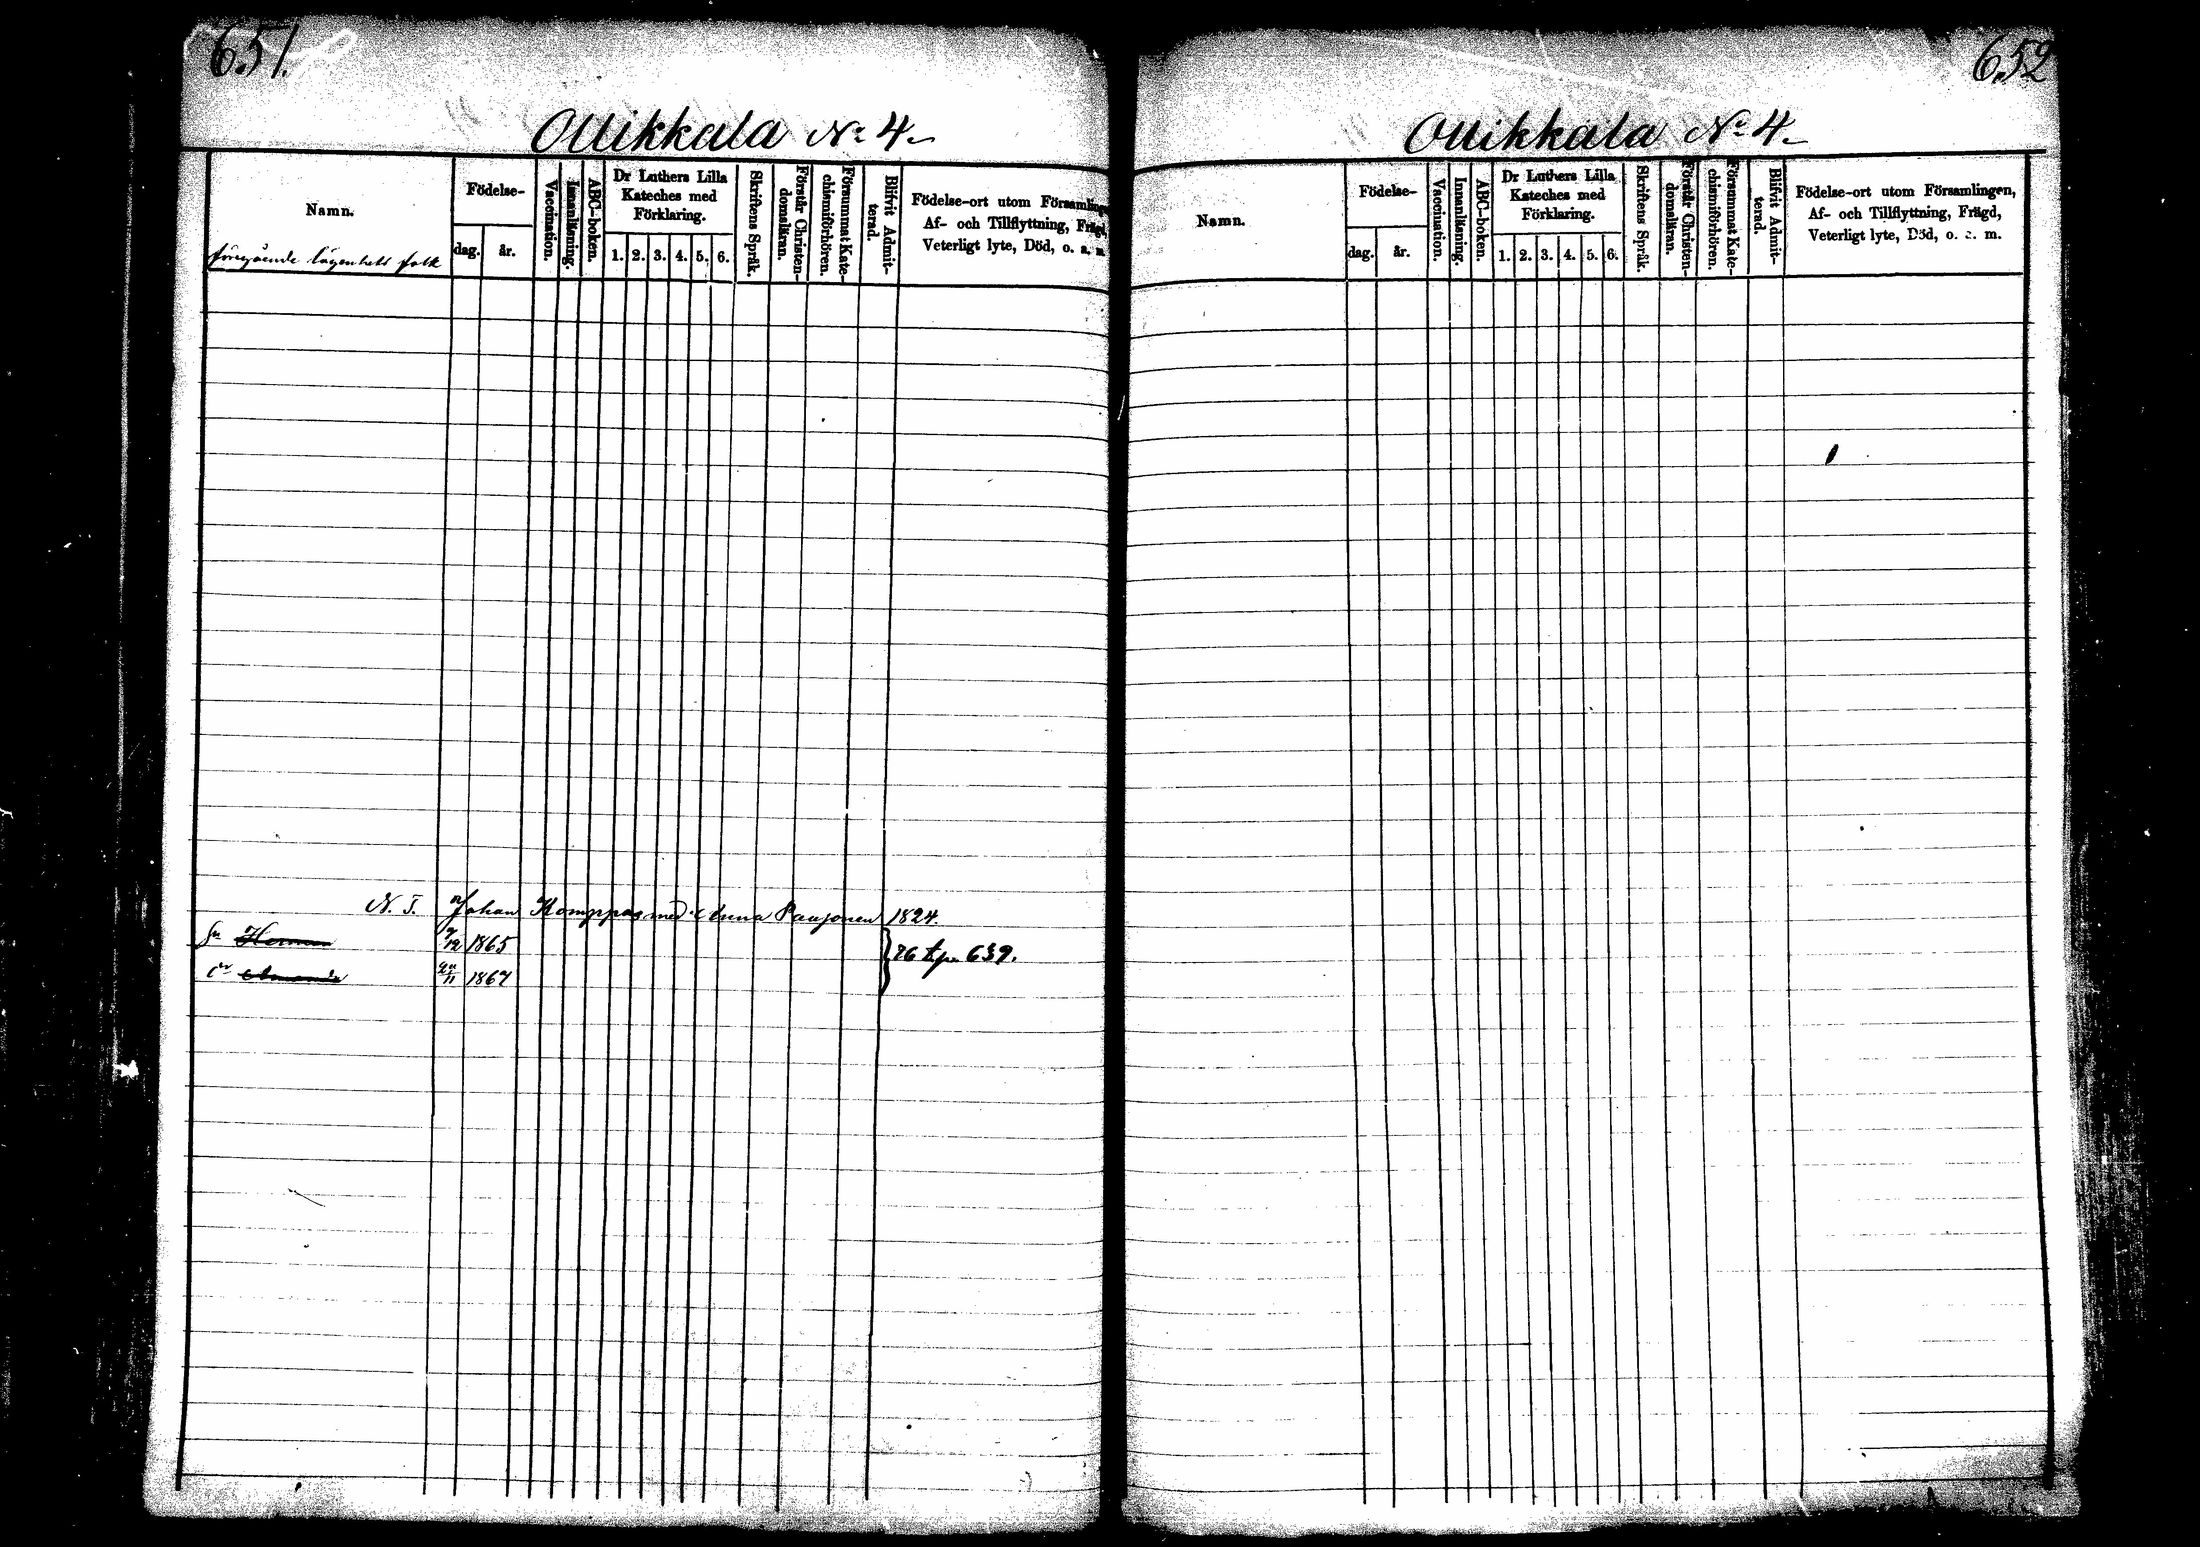 651.
Ollikkala No 4.
Namn.
föregående lägenhets folk
Födelse-
dag.
år.
Vaccination.
Innanläsning.
ABC-boken.
Dr Luthers Lilla
Kateches med
Förklaring.
1. 2. 3. 4. 5. 6.
Skriftens Språk.
Förstår Christen-
domsläran.
Försummat Kate-
chismiförhören.
Blifvit Admit-
terad.
Födelse-ort utom Församlingen,
Af- och Tillflyttning, Frägd,
Veterligt lyte, Död, o. s. m.
Johan Komppas med Anna Paajonen 1824.
Herman 1865
1867
76 t.p. 639.
652
Ollikkala No 4.
Namn.
Födelse-
dag.
år.
Vaccination.
Innanläsning.
ABC-boken.
Dr Luthers Lilla
Kateches med
Förklaring.
1. 2. 3. 4. 5. 6.
Skriftens Språk.
Förstår Christen-
domsläran.
Försummat Kate-
chismiförhören.
Blifvit Admit-
terad.
Födelse-ort utom Församlingen,
Af- och Tillflyttning, Frägd,
Veterligt lyte, Död, o. s. m.